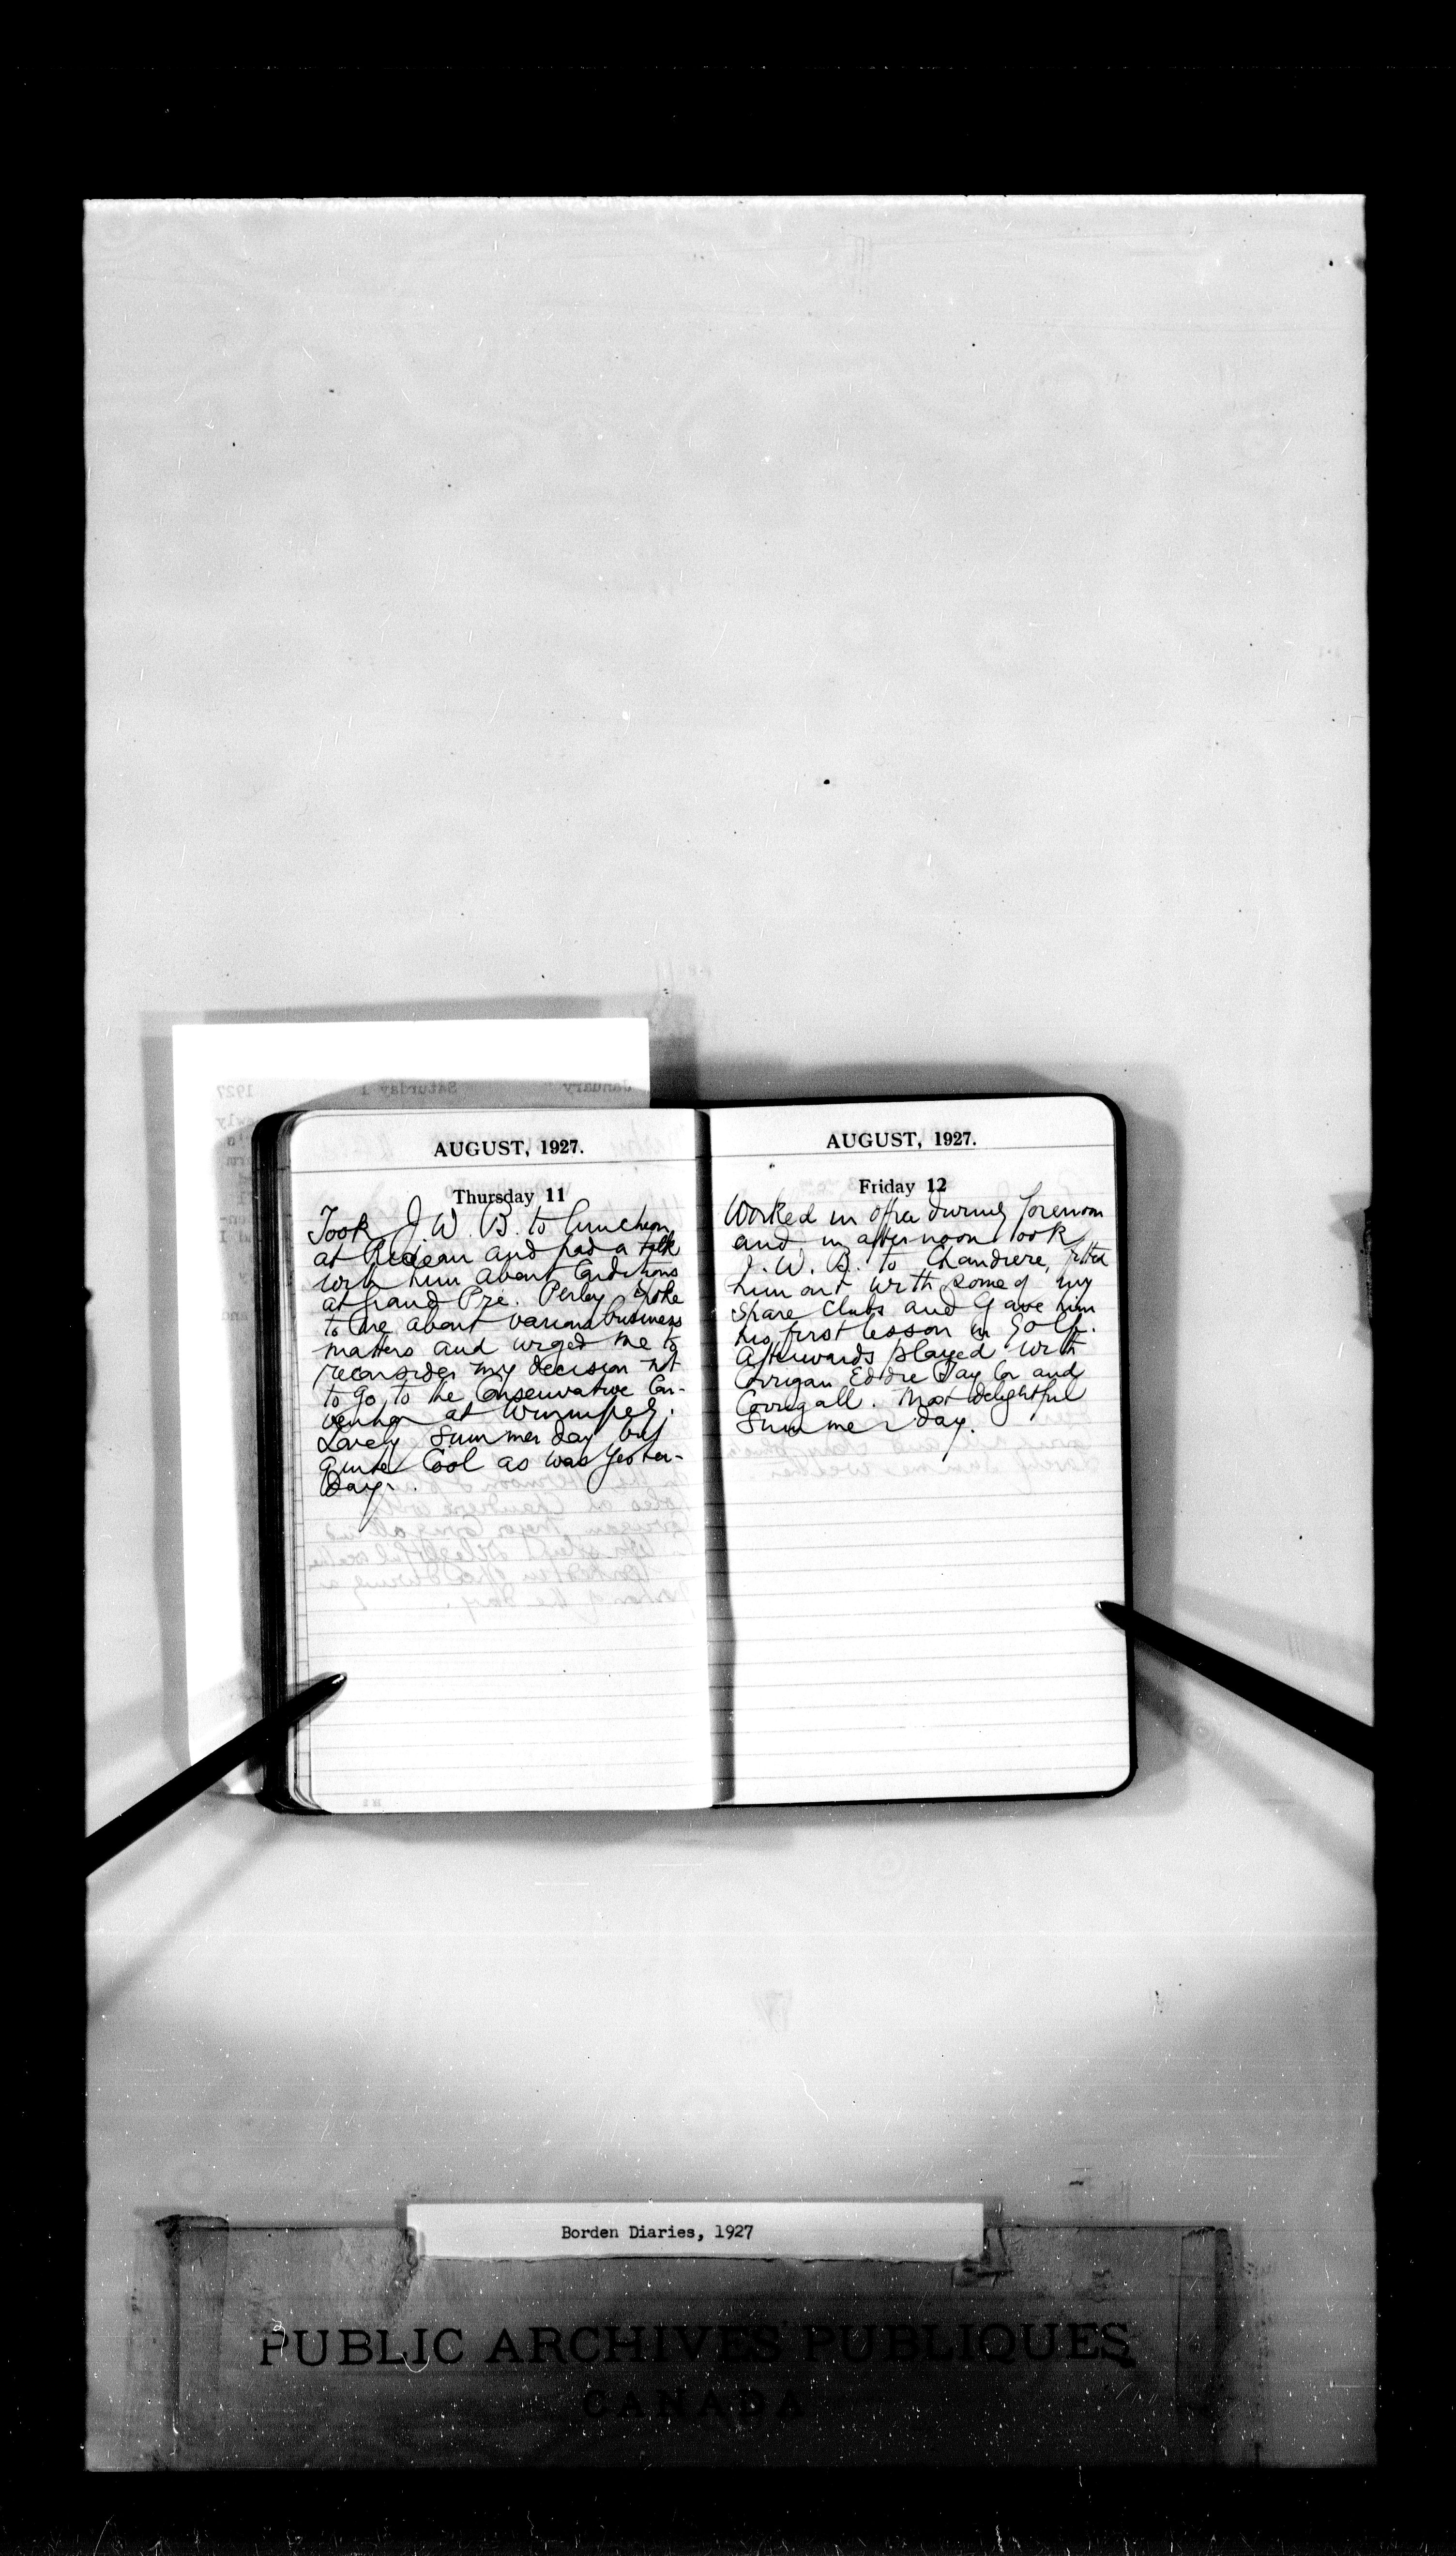 AUGUST, 1927.
Thursday 11
Took J. W. B. to luncheon
at Rideau and had a talk
with him about Conditions
at Grand Pre. Perley spoke
to me about various business
matters and urged me to
reconsider my decision not
to go to the Conservative Con-
vention at Winnipeg.
Lovely Summer day but
quite Cool as was yester-
day.
AUGUST, 1927.
Friday 12
Worked in office during forenoon
and in afternoon took
J. W. B. to Chaudiere, fitted
him out with some of my
spare Clubs and Gave him
his first lesson in Golf.
Afterwards played with
Corrigan Eddie Taylor and
Corrigall. Most delightful
Summer day.
January Saturday 1 1927
Borden Diaries, 1927
PUBLIC ARCHIVES PUBLIQUES
CANADA